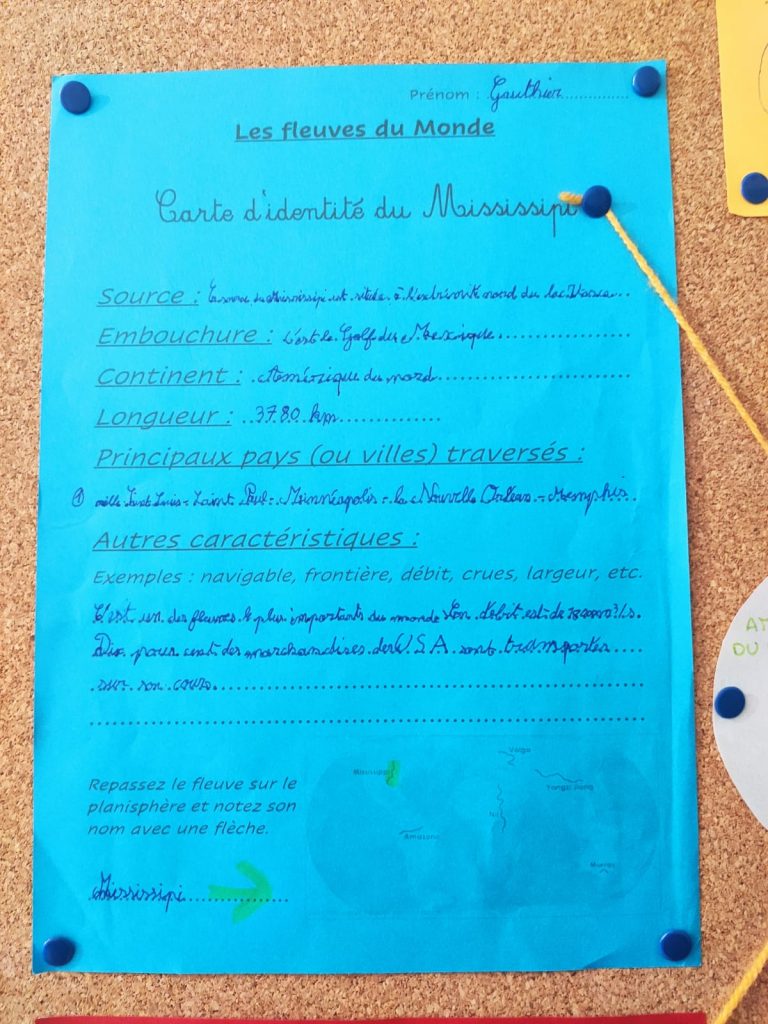 Prénom : Gauthier
Les fleuves du Monde
Carte d'identité du Mississipi
Source : La source du Mississipi est située à l'extrémité nord du lac Itasca
Embouchure : C'est le Golf du Mexique
Continent : Amérique du nord
Longueur : 3780 km
Principaux pays (ou villes) traversés :
① ville Saint Louis - Saint Paul - Minnéapolis - la Nouvelle Orléans - Memphis
Autres caractéristiques :
Exemples : navigable, frontière, débit, crues, largeur, etc.
C'est un des fleuves le plus importants du monde Son débit est de m³/s.
Dix pour cent des marchandises des U S A sont transporter
sur son cours
Volga
Mississippi
Yangzi Jiang
Repassez le fleuve sur le
planisphère et notez son
nom avec une flèche.
Nil
Amazone
Murray
Mississipi
AM
DU